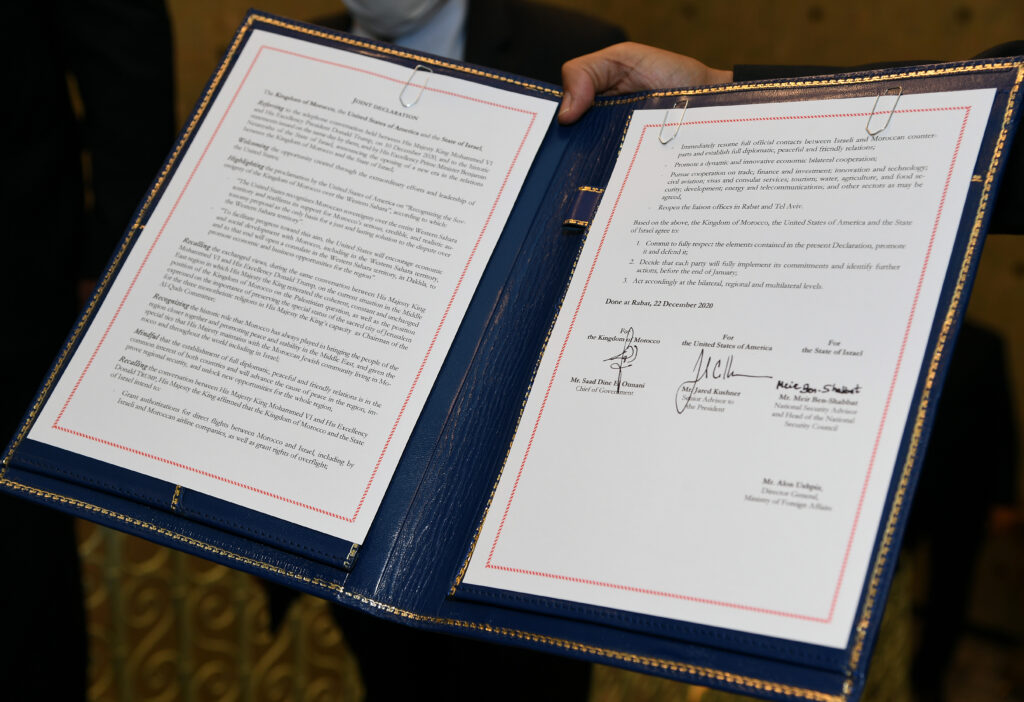 JOINT DECLARATION
The Kingdom of Morocco, the United States of America and the State of Israel,
Referring to the telephone conversation held between His Majesty King Mohammed VI
and His Excellency President Donald Trump, on 10 December 2020, and to the historic
statements issued on the same day by them, and by His Excellency Prime Minister Benjamin
Netanyahu of the State of Israel, announcing the opening of a new era in the relations
between the Kingdom of Morocco and the State of Israel;
Welcoming the opportunity created through the extraordinary efforts and leadership of
the United States;
Highlighting the proclamation by the United States of America on "Recognizing the Sov-
ereignty of the Kingdom of Morocco over the Western Sahara", according to which:
- "The United States recognizes Moroccan sovereignty over the entire Western Sahara
territory and reaffirms its support for Morocco's serious, credible, and realistic au-
tonomy proposal as the only basis for a just and lasting solution to the dispute over
the Western Sahara territory".
- "To facilitate progress toward this aim, the United States will encourage economic
and social development with Morocco, including in the Western Sahara territory,
and to that end will open a consulate in the Western Sahara territory, in Dakhla, to
promote economic and business opportunities for the region".
Recalling the exchanged views, during the same conversation between His Majesty King
Mohammed VI and His Excellency Donald Trump, on the current situation in the Middle
East region in which His Majesty the King reiterated the coherent, constant and unchanged
position of the Kingdom of Morocco on the Palestinian question, as well as the position
expressed on the importance of preserving the special status of the sacred city of Jerusalem
for the three monotheistic religions in His Majesty the King's capacity as Chairman of the
Al-Quds Committee;
Recognizing the historic role that Morocco has always played in bringing the people of the
region closer together and promoting peace and stability in the Middle East, and given the
special ties that His Majesty maintains with the Moroccan Jewish community living in Mo-
rocco and throughout the world including in Israel;
Mindful that the establishment of full diplomatic, peaceful and friendly relations is in the
common interest of both countries and will advance the cause of peace in the region, im-
prove regional security, and unlock new opportunities for the whole region;
Recalling the conversation between His Majesty King Mohammed VI and His Excellency
Donald Trump, His Majesty the King affirmed that the Kingdom of Morocco and the State
of Israel intend to:
- Grant authorisations for direct flights between Morocco and Israel, including by
Israeli and Moroccan airline companies, as well as grant rights of overflight;
- Immediately resume full official contacts between Israeli and Moroccan counter-
parts and establish full diplomatic, peaceful and friendly relations;
- Promote a dynamic and innovative economic bilateral cooperation;
- Pursue cooperation on trade; finance and investment; innovation and technology;
civil aviation; visas and consular services; tourism; water, agriculture, and food se-
curity; development; energy and telecommunications; and other sectors as may be
agreed;
- Reopen the liaison offices in Rabat and Tel Aviv.
Based on the above, the Kingdom of Morocco, the United States of America and the State
of Israel agree to:
1. Commit to fully respect the elements contained in the present Declaration, promote
it and defend it;
2. Decide that each party will fully implement its commitments and identify further
actions, before the end of January;
3. Act accordingly at the bilateral, regional and multilateral levels.
Done at Rabat, 22 December 2020
For
the Kingdom of Morocco
Mr. Saad Dine El Otmani
Chief of Government
For
the United States of America
Mr. Jared Kushner
Senior Advisor to
the President
For
the State of Israel
Meir Ben-Shabbat
Mr. Meir Ben-Shabbat
National Security Advisor
and Head of the National
Security Council
Mr. Alon Ushpiz,
Director General,
Ministry of Foreign Affairs